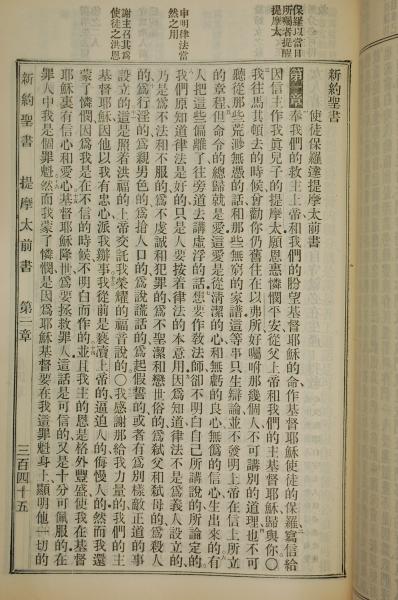 保羅以當日
所囑者提醒
提摩太
申明律法當
然之用
謝主召其爲
使徒之洪恩
新約聖書
使徒保羅達提摩太前書
第一章 奉我們的救主上帝和我們的盼望基督耶穌的命作基督耶穌使徒的保羅寫信給
因信主作我眞兒子的提摩太願恩惠憐憫平安從父上帝和我們的主基督耶穌歸與你〇
我往馬其頓去的時候曾勸你仍舊住在以弗所好囑咐那幾個人不可講別的道理也不可
聽從那些荒渺無憑的話和那些無窮的家譜這等事只生辯論並不發明上帝在信上所立
的章程但命令的總歸就是愛這愛是從清潔的心和無虧的良心無僞的信心生出來的有
人把這些偏離了往旁邊去講虛浮的話想要作敎法師卻不明白自己所講說的所論定的
我們原知道律法是好的只是人要按着律法的本意用因爲知道律法不是爲義人設立的
乃是爲不法和不服的爲不虔誠和犯罪的爲不聖潔和戀世俗的爲弑父和弑母的爲殺人
的爲行淫的爲親男色的爲搶人口的爲說謊話的爲起假誓的或者有爲別樣敵正道的事
設立的這是照着洪福的上帝交託我榮耀的福音說的〇我感謝那給我力量的我們的主
基督耶穌因他以我有忠心派我辦事我從前是褻瀆上帝的逼迫人的侮慢人的然而我還
蒙了憐憫因爲我是在不信的時候不明白而作的並且我主的恩是格外豐盛使我在基督
耶穌裏有信心和愛心基督耶穌降世爲要拯救罪人這話是可信的又是十分可佩服的在
罪人中我是個罪魁然而我蒙了憐憫是因爲耶穌基督要在我這罪魁身上顯明他一切的
新約聖書 提摩太前書 第一章 三百四十五